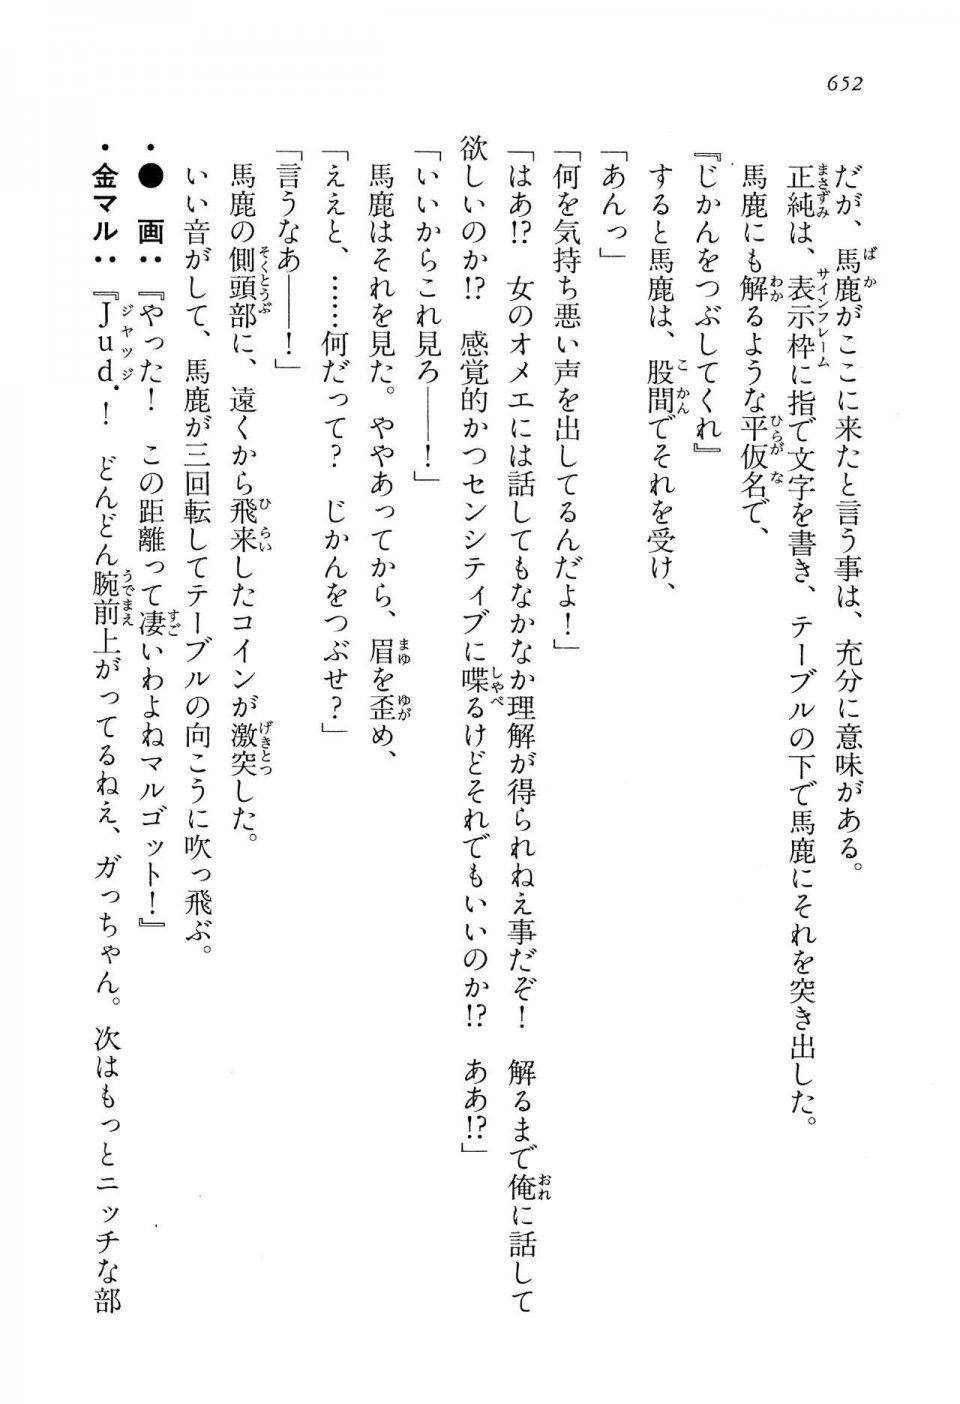 652
だが、馬鹿がここに来たと言う事は、充分に意味がある。
正純は、表示枠に指で文字を書き、テーブルの下で馬鹿にそれを突き出した。
馬鹿にも解るような平仮名で、
『じかんをつぶしてくれ』
すると馬鹿は、股間でそれを受け、
「あんっ」
「何を気持ち悪い声を出してるんだよ！」
「はあ!?　女のオメエには話してもなかなか理解が得られねえ事だぞ！　解るまで俺に話して
欲しいのか!?　感覚的かつセンシティブに喋るけどそれでもいいのか!?　ああ!?」
「いいからこれ見ろ——！」
馬鹿はそれを見た。ややあってから、眉を歪め、
「ええと、……何だって？　じかんをつぶせ？」
「言うなあ——！」
馬鹿の側頭部に、遠くから飛来したコインが激突した。
いい音がして、馬鹿が三回転してテーブルの向こうに吹っ飛ぶ。
・●　画：『やった！　この距離って凄いわよねマルゴット！』
・金マル：『Ｊｕｄ．！　どんどん腕前上がってるねえ、ガっちゃん。次はもっとニッチな部